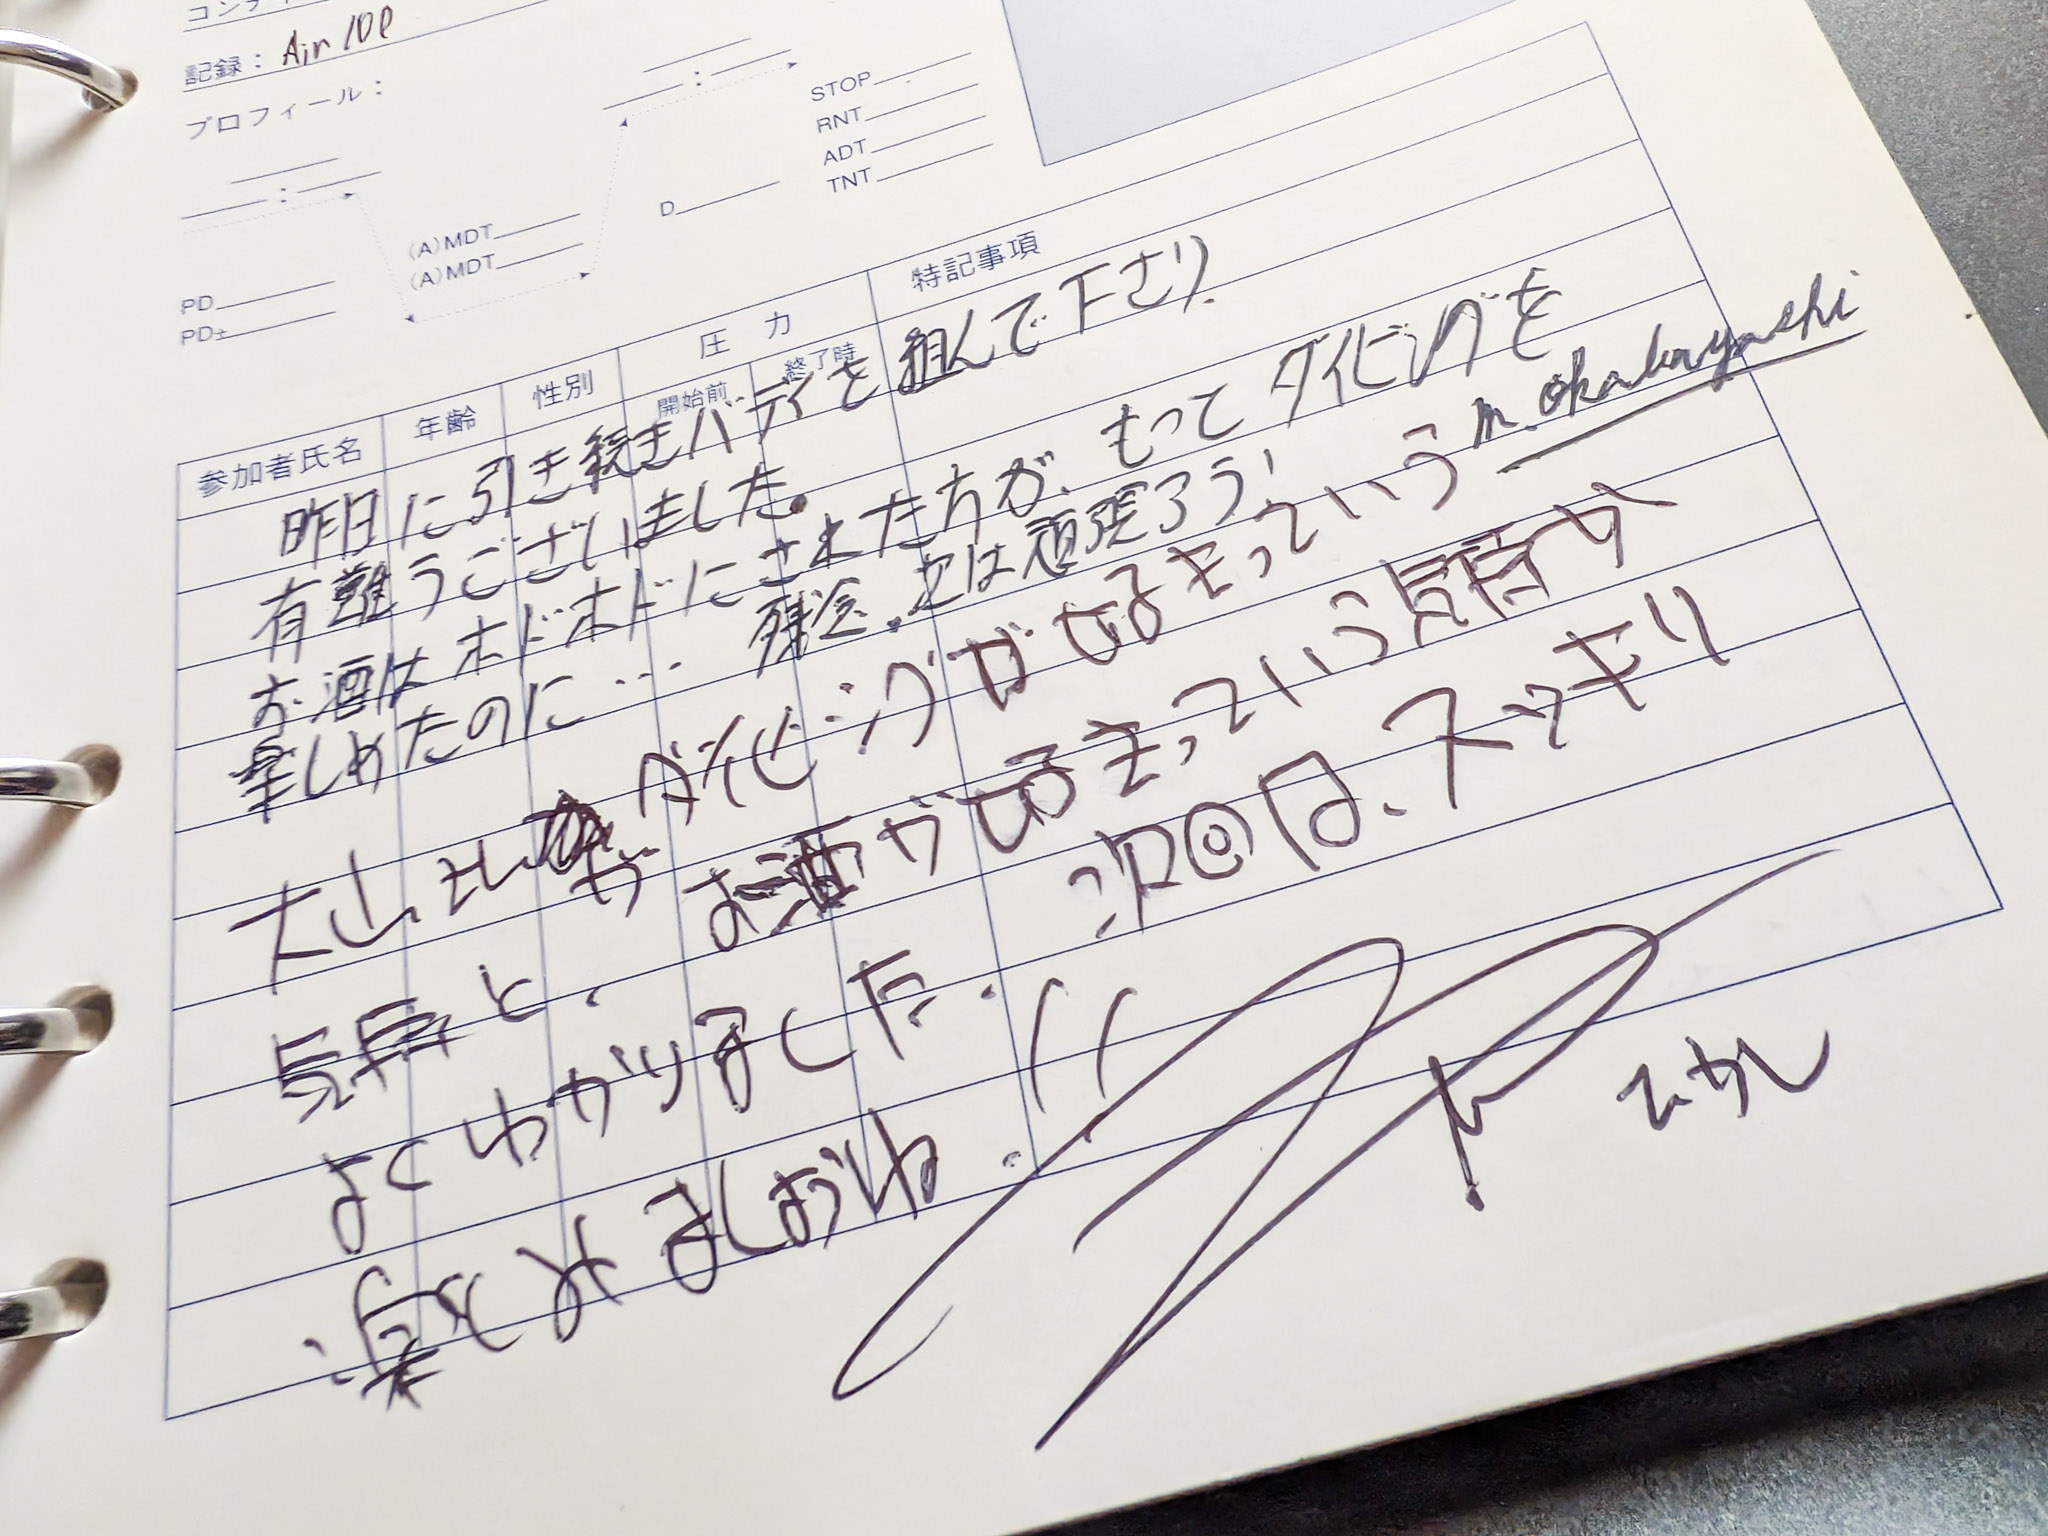 記録： Air 10l
プロフィール：
:
:
STOP
RNT
ADT
TNT
D
(A)MDT
(A)MDT
PD
PD±
参加者氏名 年齢 性別 圧力 開始前 終了時 特記事項
昨日に引き続きバディを組んで下さり
有難うございました。
お酒はホドホドにされた方が、もってダイビングを
楽しめたのに… 残念。次は頑張ろう!
m. okabayashi
大山さんが ダイビングが大好きっていう
気持と、お酒が大好きっていう気持が
よくわかりました. 次回は、スッキリ
楽しみましょうね.
たかし